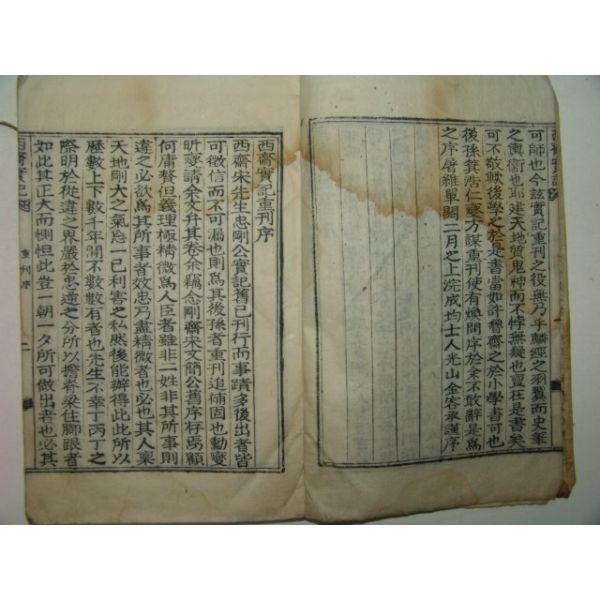 可師也今玆實記重刊之役無乃乎麟經之羽翼而史筆
之輿衛也耶建天地質鬼神而不悖無疑也亶在是書矣
可不敬歟後學之於是書當如許魯齋之於小學書可也
後孫箕浩仁逐方謀重刊使有煥問序於余不敢辭是爲
之序屠維單閼二月之上浣成均士人光山金容承謹序
西齋實記重刊序
西齋宋先生忠剛公實記舊已刊行而事蹟多後出者皆
可徵信而不可漏也則爲其後孫者重刊追補固也勳燮
昕燮請余文弁其卷余竊念剛齋宋文簡公舊序存焉顧
何庸贅但義理極精微爲人臣者雖非一姓非其所事則
違之必欲爲其所事者效忠乃盡精微者也必也其人稟
天地剛大之氣忘一己利害之私然後能辦得此此所以
歷數上下數千年間不數數有者也先生不幸丁丙丁之
際明於從違之界嚴於忠逆之分所以擔脊梁住腳跟者
如此其正大而惻怛此豈一朝一夕所可做出者也必其
西齋實記
重刊序
二